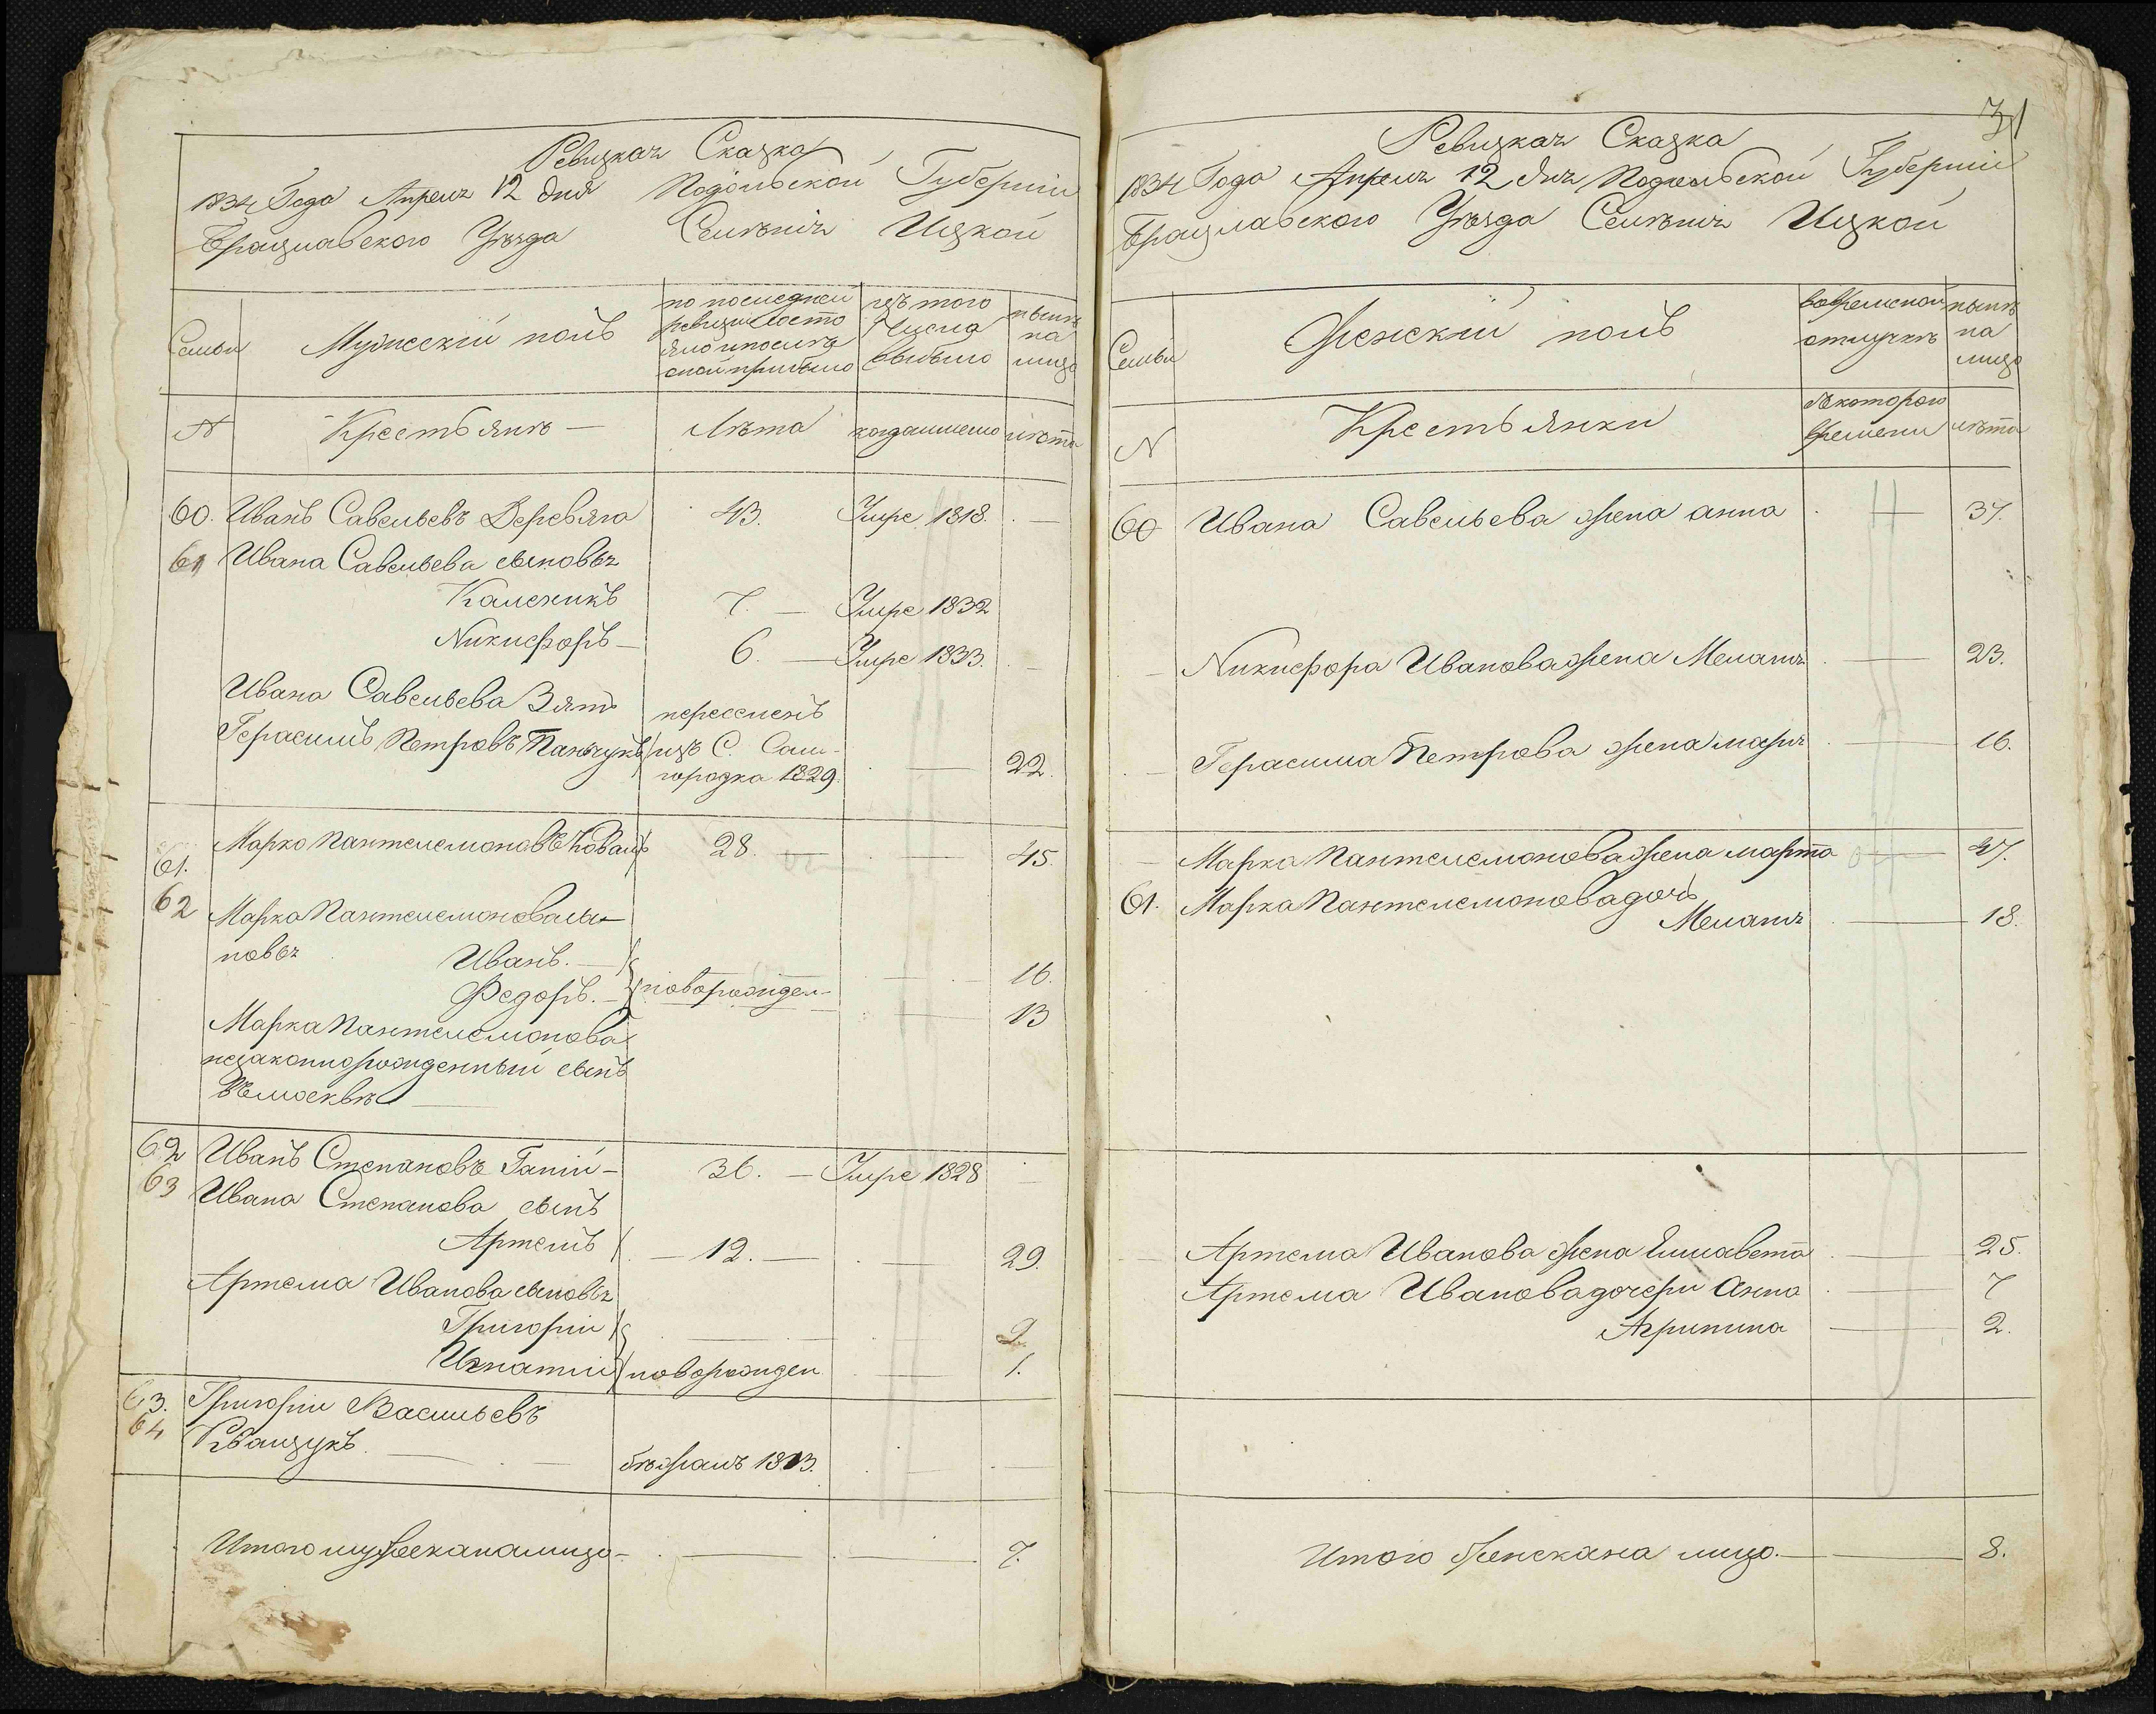 Ревизкая Сказка
1834 Года Апреля 12 дня Подольской Губернии
Брацлавского Уѣзда Селѣния Ицкой
Семьи
Мужескій полъ
по последней
ревизіи состо
яло и после
оной прибыло
изъ того
Числа
выбыло
нынѣ
на
лицо
N
Крестьянѣ —
Лѣта
когда имено
лѣта
60. Иванъ Савельевъ Деревяга 43. Умре 1818. —
61 Ивана Савельева сыновья
Каленикъ 7. — Умре 1832
Никифоръ — 6. — Умре 1833. —
Ивана Савельева Зять переселенъ
Герасимъ Петровъ Панчукъ изъ С. Сам-
городка 1829. — 22.
61. Марко Пантелемоновъ Коваль 28. — — 45.
62 Марка Пантелемонова сы-
новья Иванъ. — — 16.
Федоръ. — новорожден — — 13
Марка Пантелемонова
незаконнорожденный сынъ
62 Иванъ Степановъ Гапій — 36. — Умре 1828 —
63 Ивана Степанова сынъ
Артемъ — 12. — — 29.
Артема Иванова сыновья
Григорий — — 2.
Игнатий новорожден — 1.
63. Григорий Васильевъ
64 Кващукъ. — бѣжалъ 1813. — —
Итого мужеска на лицо — — — 7.
31
Ревизкая Сказка
1834 Года Апреля 12 дня Подольской Губернии
Брацлавского Уѣзда Селѣния Ицкой
Семьи
Женский полъ
во временной
отлучкѣ
нынѣ
на
лицо
N
Крестьянки
съ которого
времени
лѣта
60 Ивана Савельева жена анна — 37.
— Никифора Иванова жена Мелания — 23.
— Герасима Петрова жена мария — 16.
— Марка Пантелемонова жена марта — 47.
61. Марка Пантелемонова дочь
Мелания — 18.
— Артема Иванова жена Елисавета — 25.
Артема Иванова дочери Анна — 7
Агрипина — 2.
Итого женска на лицо. — — 8.